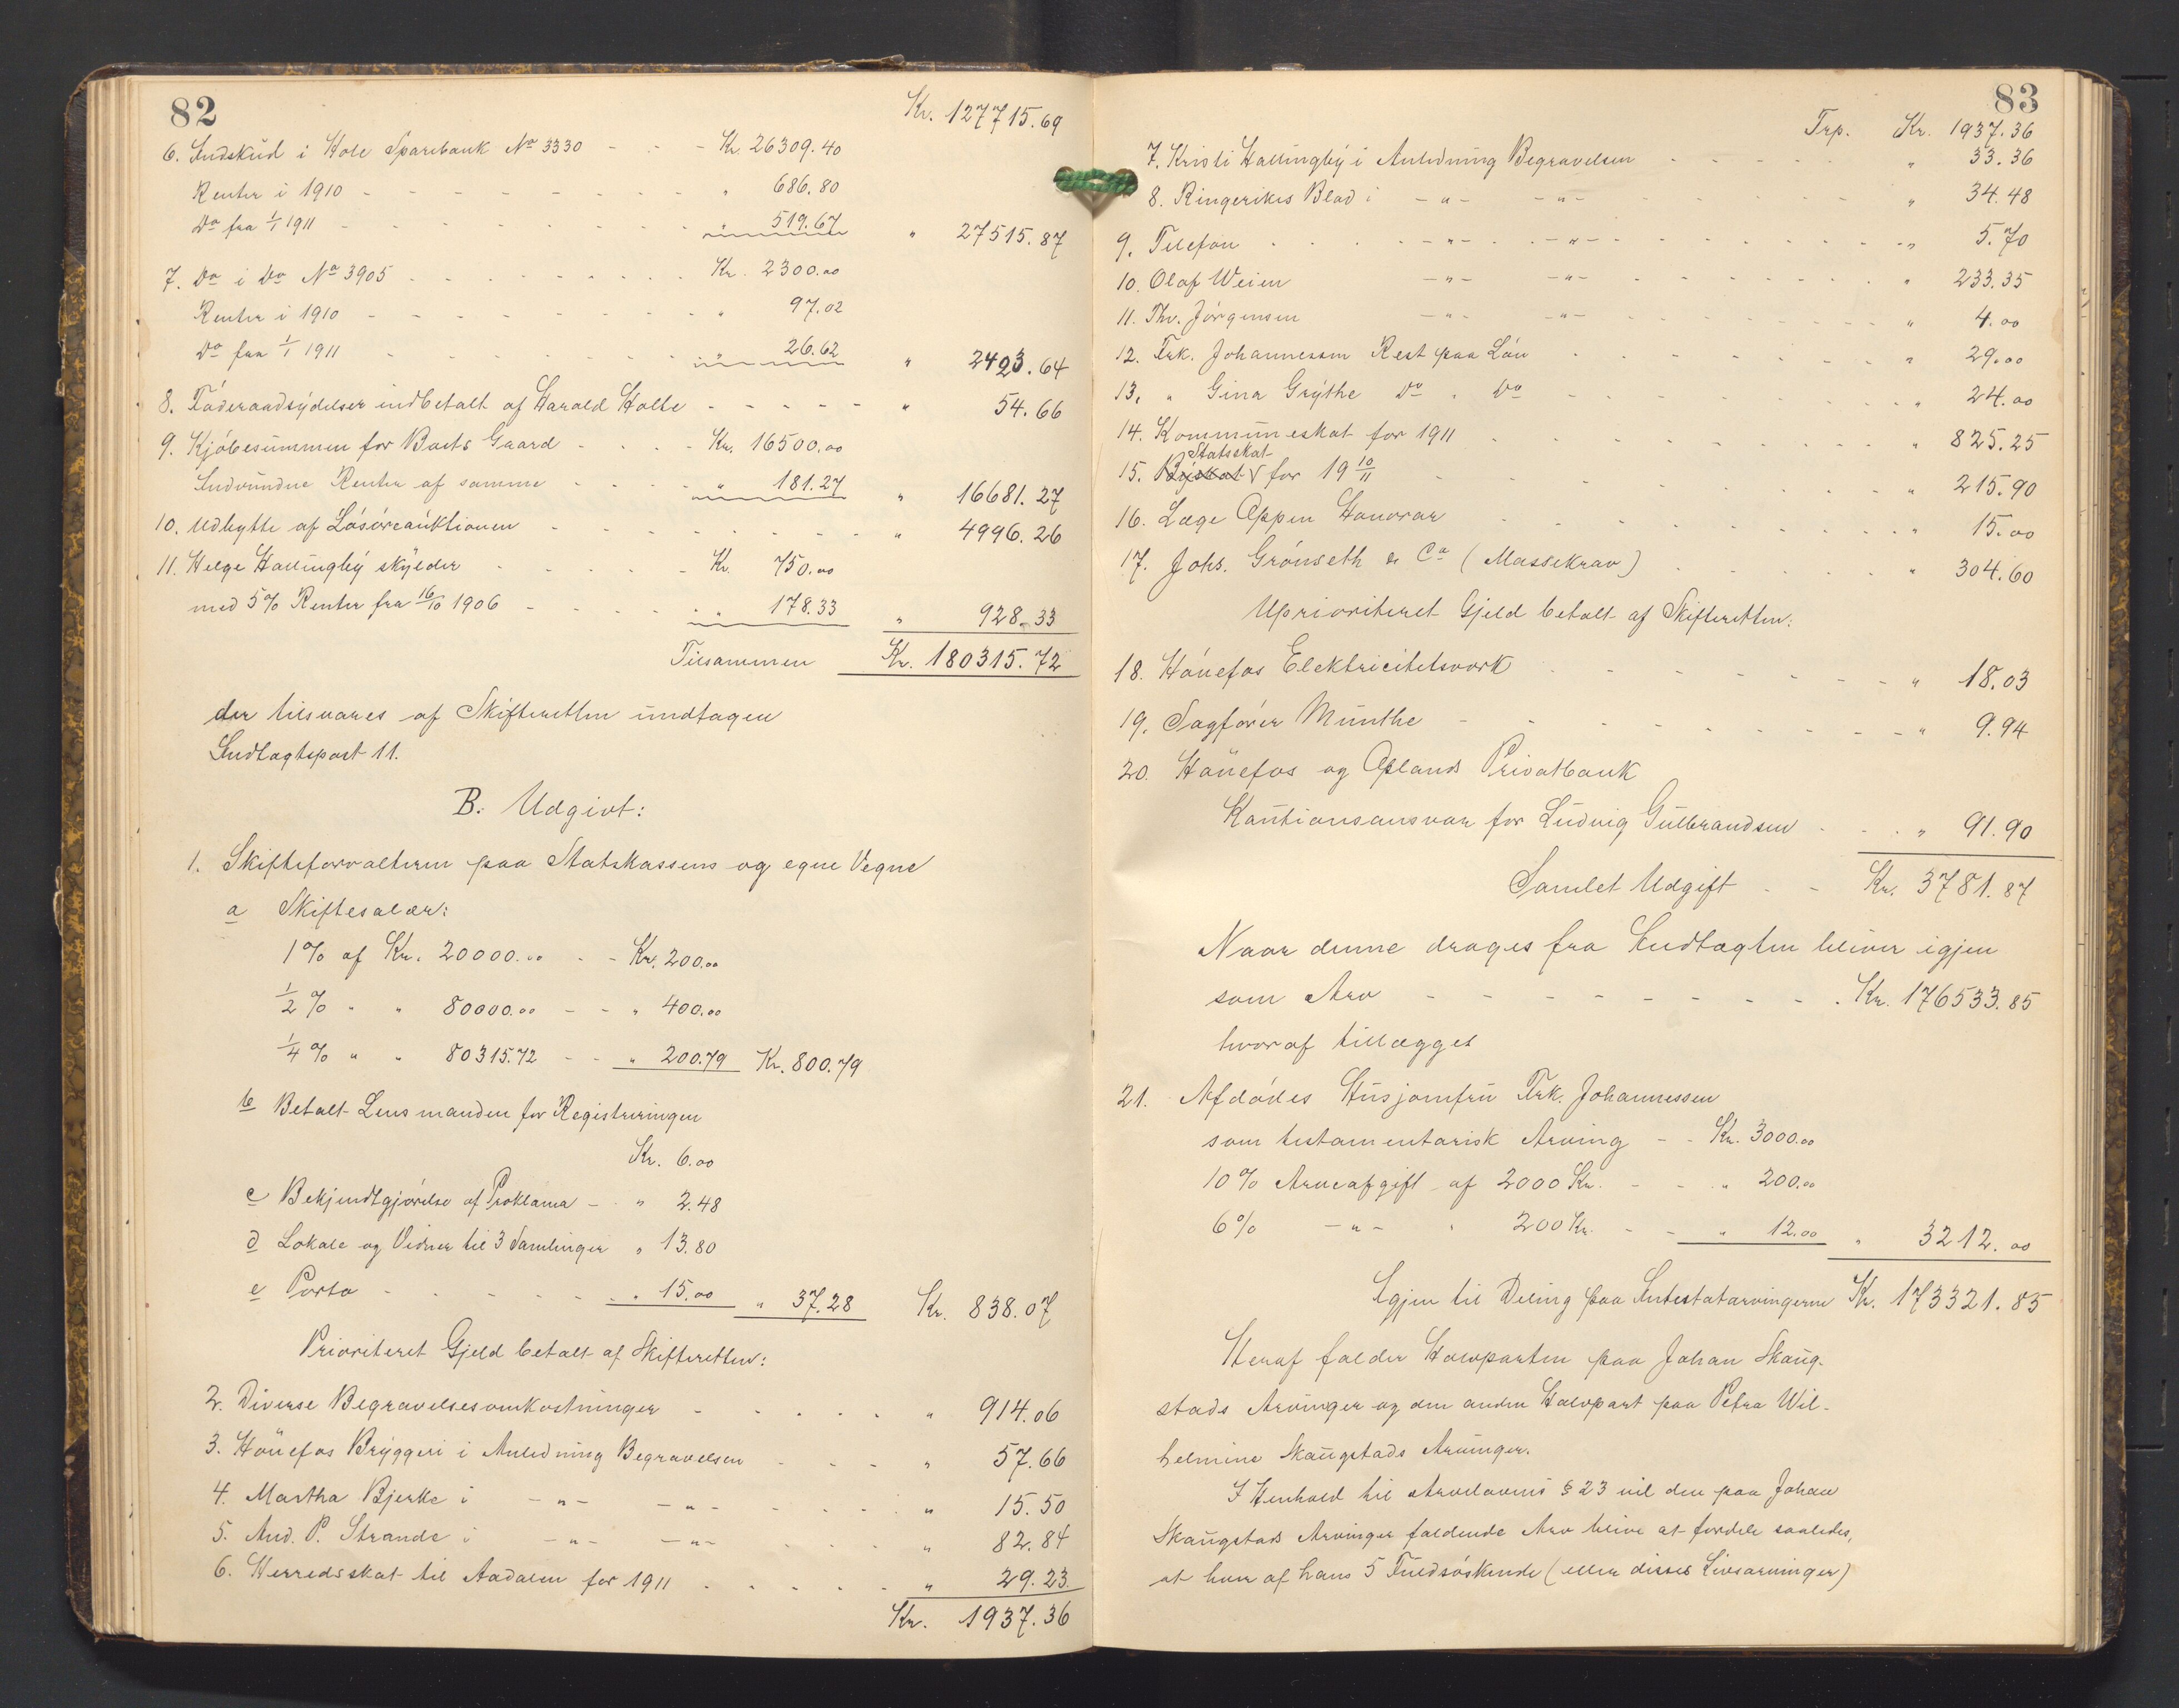 82
Kr. 127715.69
6. Indskud i Hole Sparebank No 3330 - - - Kr. 26309.40
Renter i 1910 - - - - - - - - - " 686.80
Do fra 1/1 1911 - - - - - - - - - " 519.67 " 27515.87
7. Do i Do No 3905 - - - - - - - Kr. 2300.00
Renter i 1910 - - - - - - - - - " 97.02
Do fra 1/1 1911 - - - - - - - - - " 26.62 " 2423.64
8. Föderaadsydelser indbetalt af Harald Holte - - - - - " 54.66
9. Kjöbesummen for Borts Gaard - - - - Kr. 16500.00
Indvundne Renter af samme - - - - " 181.27 " 16681.27
10. Udbytte af Lösöreauktionen - - - - - - - - " 4996.26
11. Helge Hallingby skylder - - - - - Kr. 750.00
med 5% Renter fra 16/10 1906 - - - - - " 178.33 " 928.33
Tilsammen Kr. 180315.72
der tilsvares af Skifteretten undtagen
Indtægtspost 11.
B. Udgivt:
1. Skifteforvalteren paa Statskassens og egne Vegne
a Skiftesalær:
1% af Kr. 20000.00 - - Kr. 200.00
1/2% " " 80000.00 - - " 400.00
1/4% " " 80315.72 - - " 200.79 Kr. 800.79
b Betalt Lensmanden for Registreringen
Kr. 6.00
c Bekjendtgjörelse af Proklama - " 2.48
d Lokale og Vidner til 3 Samlinger " 13.80
e Porto - - - - - - " 15.00 " 37.28 Kr. 838.07
Prioriteret Gjeld betalt af Skifteretten:
2. Diverse Begravelsesomkostninger - - - - - " 914.06
3. Hönefos Bryggeri i Anledning Begravelsen - - - " 57.66
4. Martha Bjerke i -"- -"- - - - - " 15.50
5. And. P. Strande i -"- -"- - - - " 82.84
6. Herredsskat til Aadalen for 1911 - - - - - " 29.23
Kr. 1937.36
83
Trp. Kr. 1937.36
7. Kristi Hallingby i Anledning Begravelsen - - - - - " 33.36
8. Ringerikes Blad i -"- -"- - - - - - " 34.48
9. Telefon - - - - -"- - -"- - - - - - - " 5.70
10. Olaf Weien -"- -"- - - - - - - " 233.35
11. Thv. Jörgensen -"- -"- - - - - - - " 4.00
12. Frk. Johannessen Rest paa Lön - - - - - - - " 29.00
13. " Gina Grythe Do " Do - - - - - - - " 24.00
14. Kommuneskat for 1911 - - - - - - - - " 825.25
Statsskat
15. Byskat for 19 10/11 - - - - - - - - " 215.90
16. Læge Oppen Honorar - - - - - - - - " 15.00
17. Johs. Grönseth & Co (Massekrav) - - - - - " 304.60
Uprioriteret Gjeld betalt af Skifteretten:
18. Hönefos Elektricitetsverk - - - - - - - " 18.03
19. Sagförer Munthe - - - - - - - - " 9.94
20. Hönefos og Oplands Privatbank
Kautionsansvar for Ludvig Gulbrandsen - - - " 91.90
Samlet Udgift - - Kr. 3781.87
Naar denne drages fra Indtægten bliver igjen
som Arv - - - - - - - - - Kr. 176533.85
hvoraf tillægges
21. Afdödes Husjomfru Frk. Johannessen
som testamentarisk Arving - - Kr. 3000.00
10% Arveafgift af 2000 Kr. - - " 200.00
6% -"- " 200 Kr. - - " 12.00 " 3212.00
Igjen til Deling paa Intestatarvingerne Kr. 173321.85
Heraf falder Halvparten paa Johan Skaug-
stads Arvinger og den anden Halvpart paa Petra Wil-
helmine Skaugstads Arvinger.
I Henhold til Arvelovens § 23 vil den paa Johan
Skaugstads Arvinger faldende Arv blive at fordele saaledes,
at hver af hans 5 Fuldsöskende (eller disses Livsarvinger)